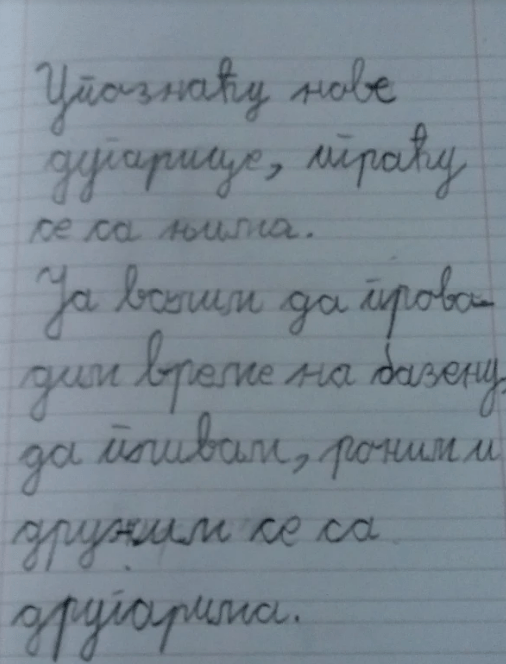 Упознаћу нове
дугарице, играћу
се са њима.
Ја волим да прово-
дим време на базену,
да пливам, роним и
дружим се са
другарима.